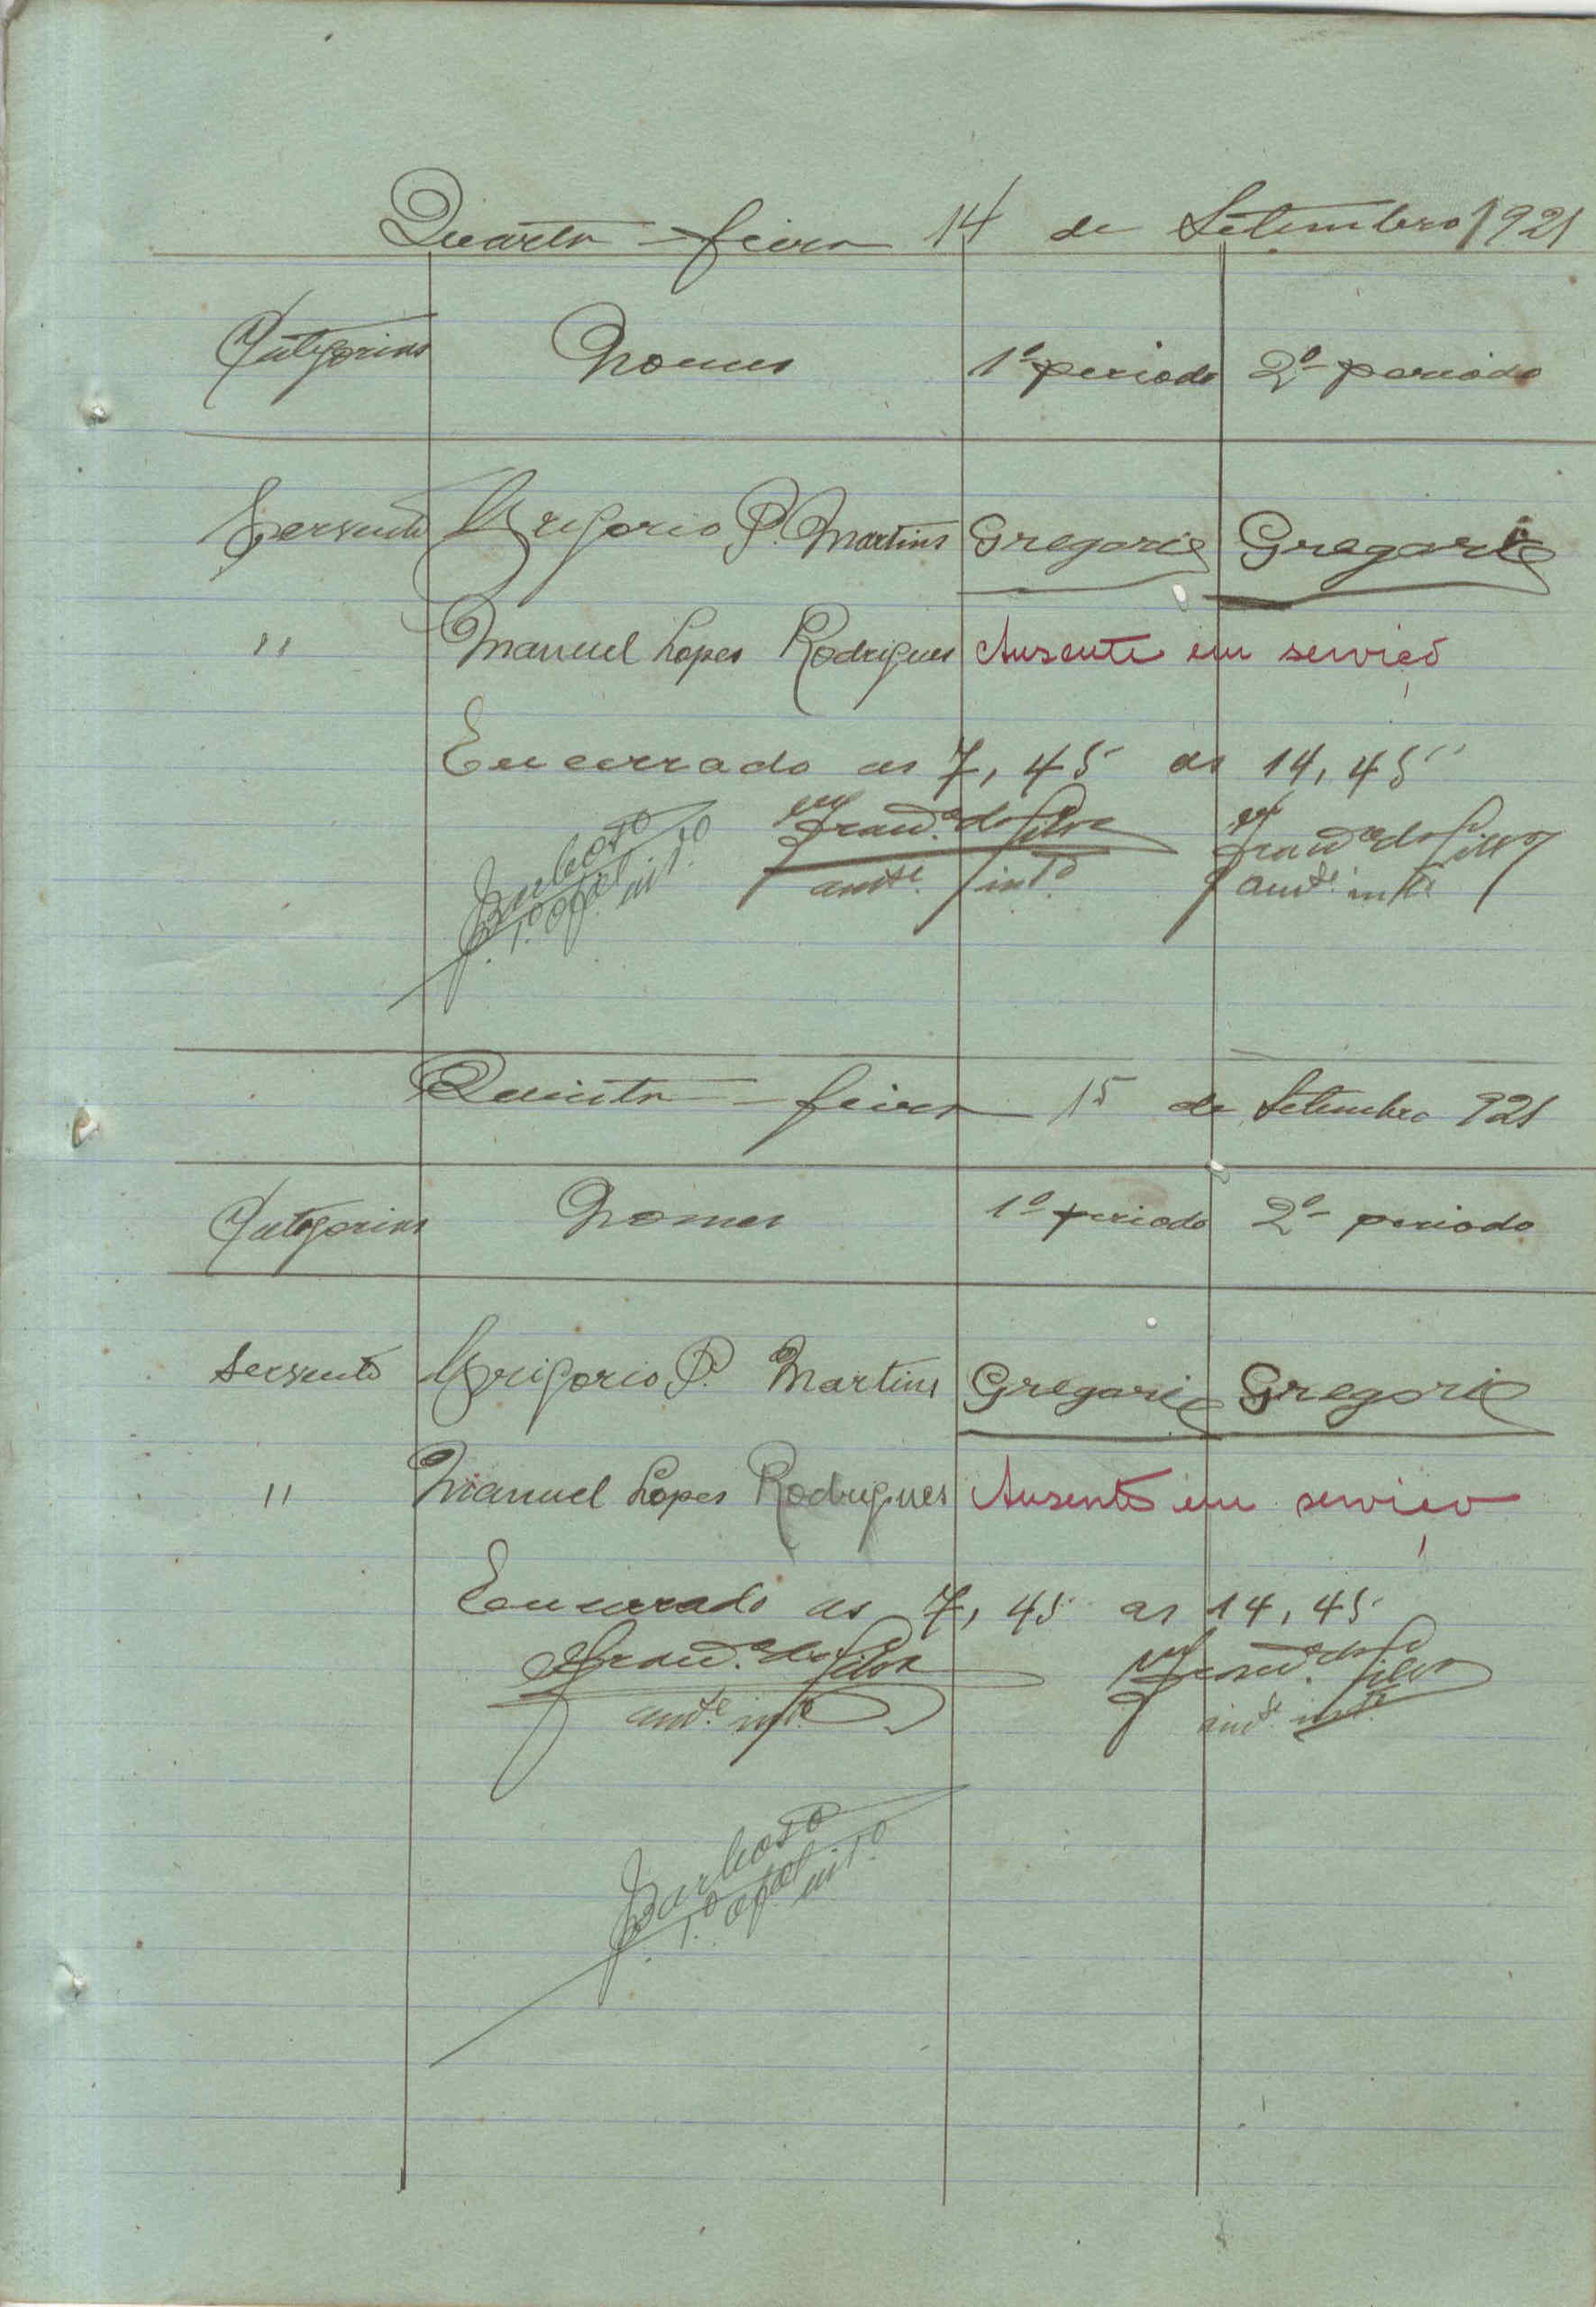 Quarta-feira 14 de Setembro 1921
Categorias Nomes 1º periodo 2º periodo
Servente Grigorio P. Martins Gregorio Gregorio
" Manuel Lopes Rodrigues Ausente em serviço
Encerrado as 7,45 as 14,45
Barbosa
1º ofal intº
Franco da Silva Franco da Silva
amte. intº amte. intº
Quinta-feira 15 de Setembro 921
Categorias Nomes 1º periodo 2º periodo
Servente Grigorio P. Martins Gregorio Gregorio
" Manuel Lopes Rodrigues Ausente em serviço
Encerrado as 7,45 as 14,45
Franco da Silva Franco da Silva
amte. intº amte. intº
Barbosa
1º ofal intº